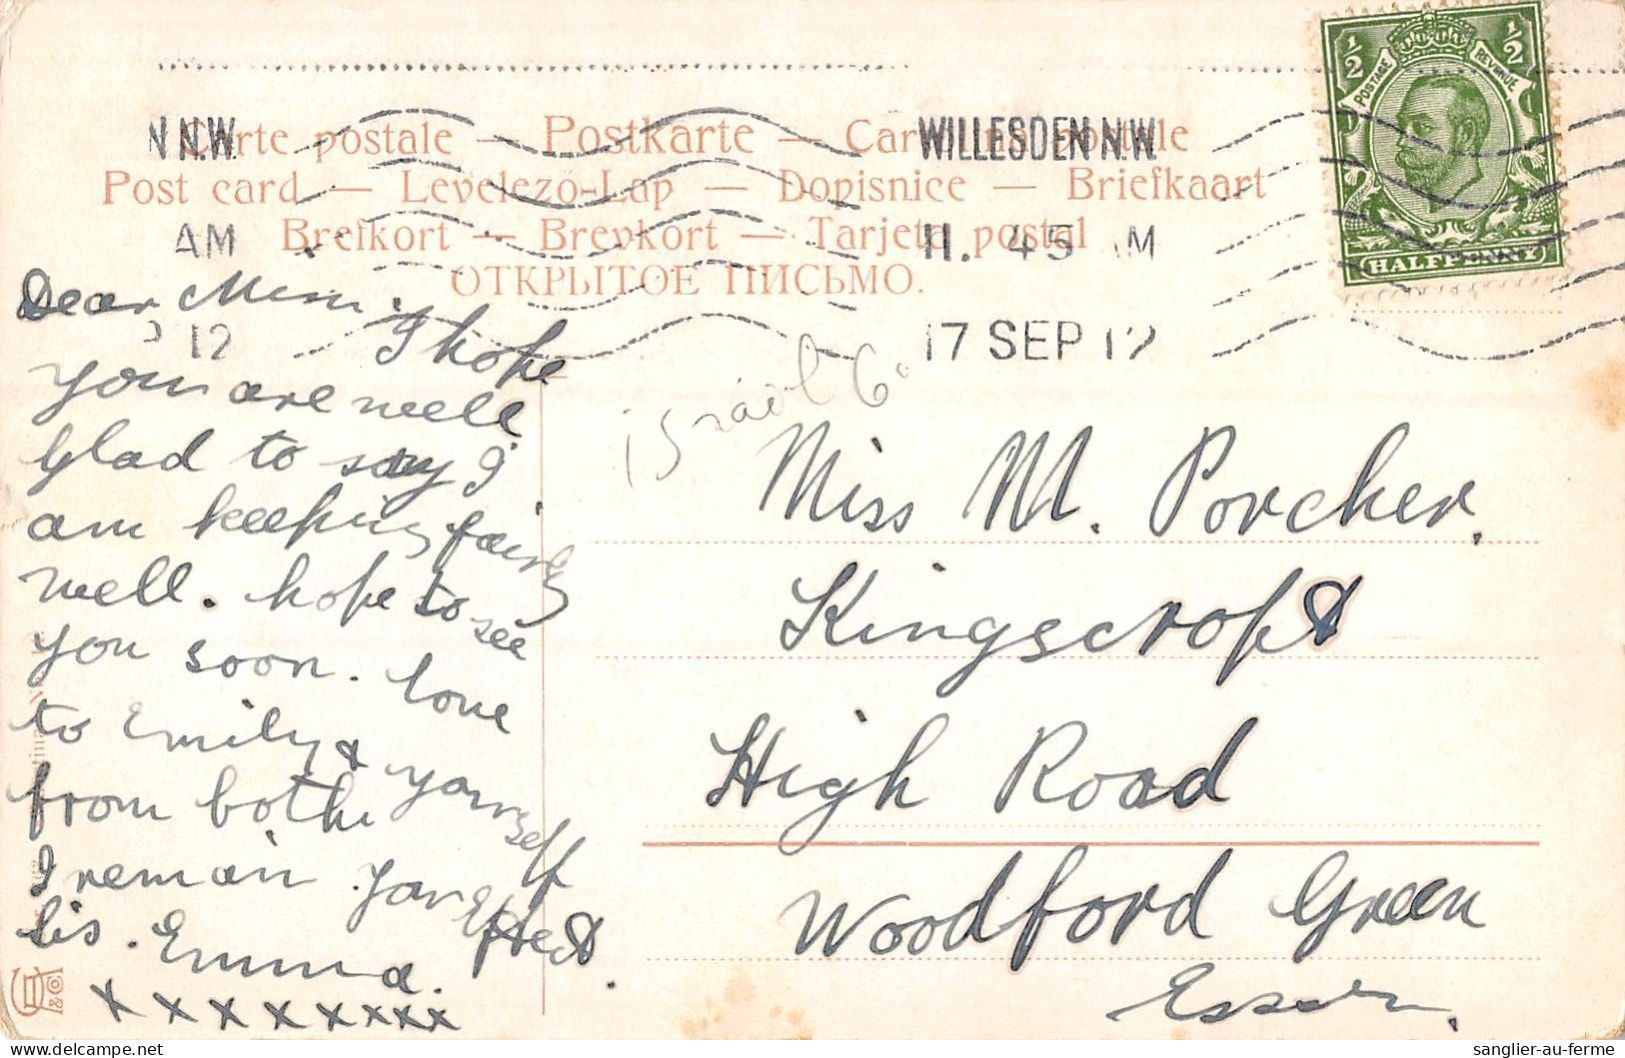 Carte postale — Postkarte — Cartolina postale
Post card — Levelezo-Lap — Dopisnice — Briefkaart
Brefkort — Brevkort — Tarjeta postal
ОТКРЫТОЕ ПИСЬМО.
N.W.
AM
12
WILLESDEN N.W.
11. 45 AM
17 SEP 12
½ ½
POSTAGE REVENUE
HALFPENNY
Dear Mim I hope
you are well
Glad to say I
am keeping fairly
well. hope to see
you soon. love
to Emily & yourself
from both
I remain your affect
Sis. Emma.
x x x x x x x x
Israël 6
Miss M. Porcher.
Kingscroft
High Road
Woodford Green
Essex.
& Co
sanglier-au-ferme